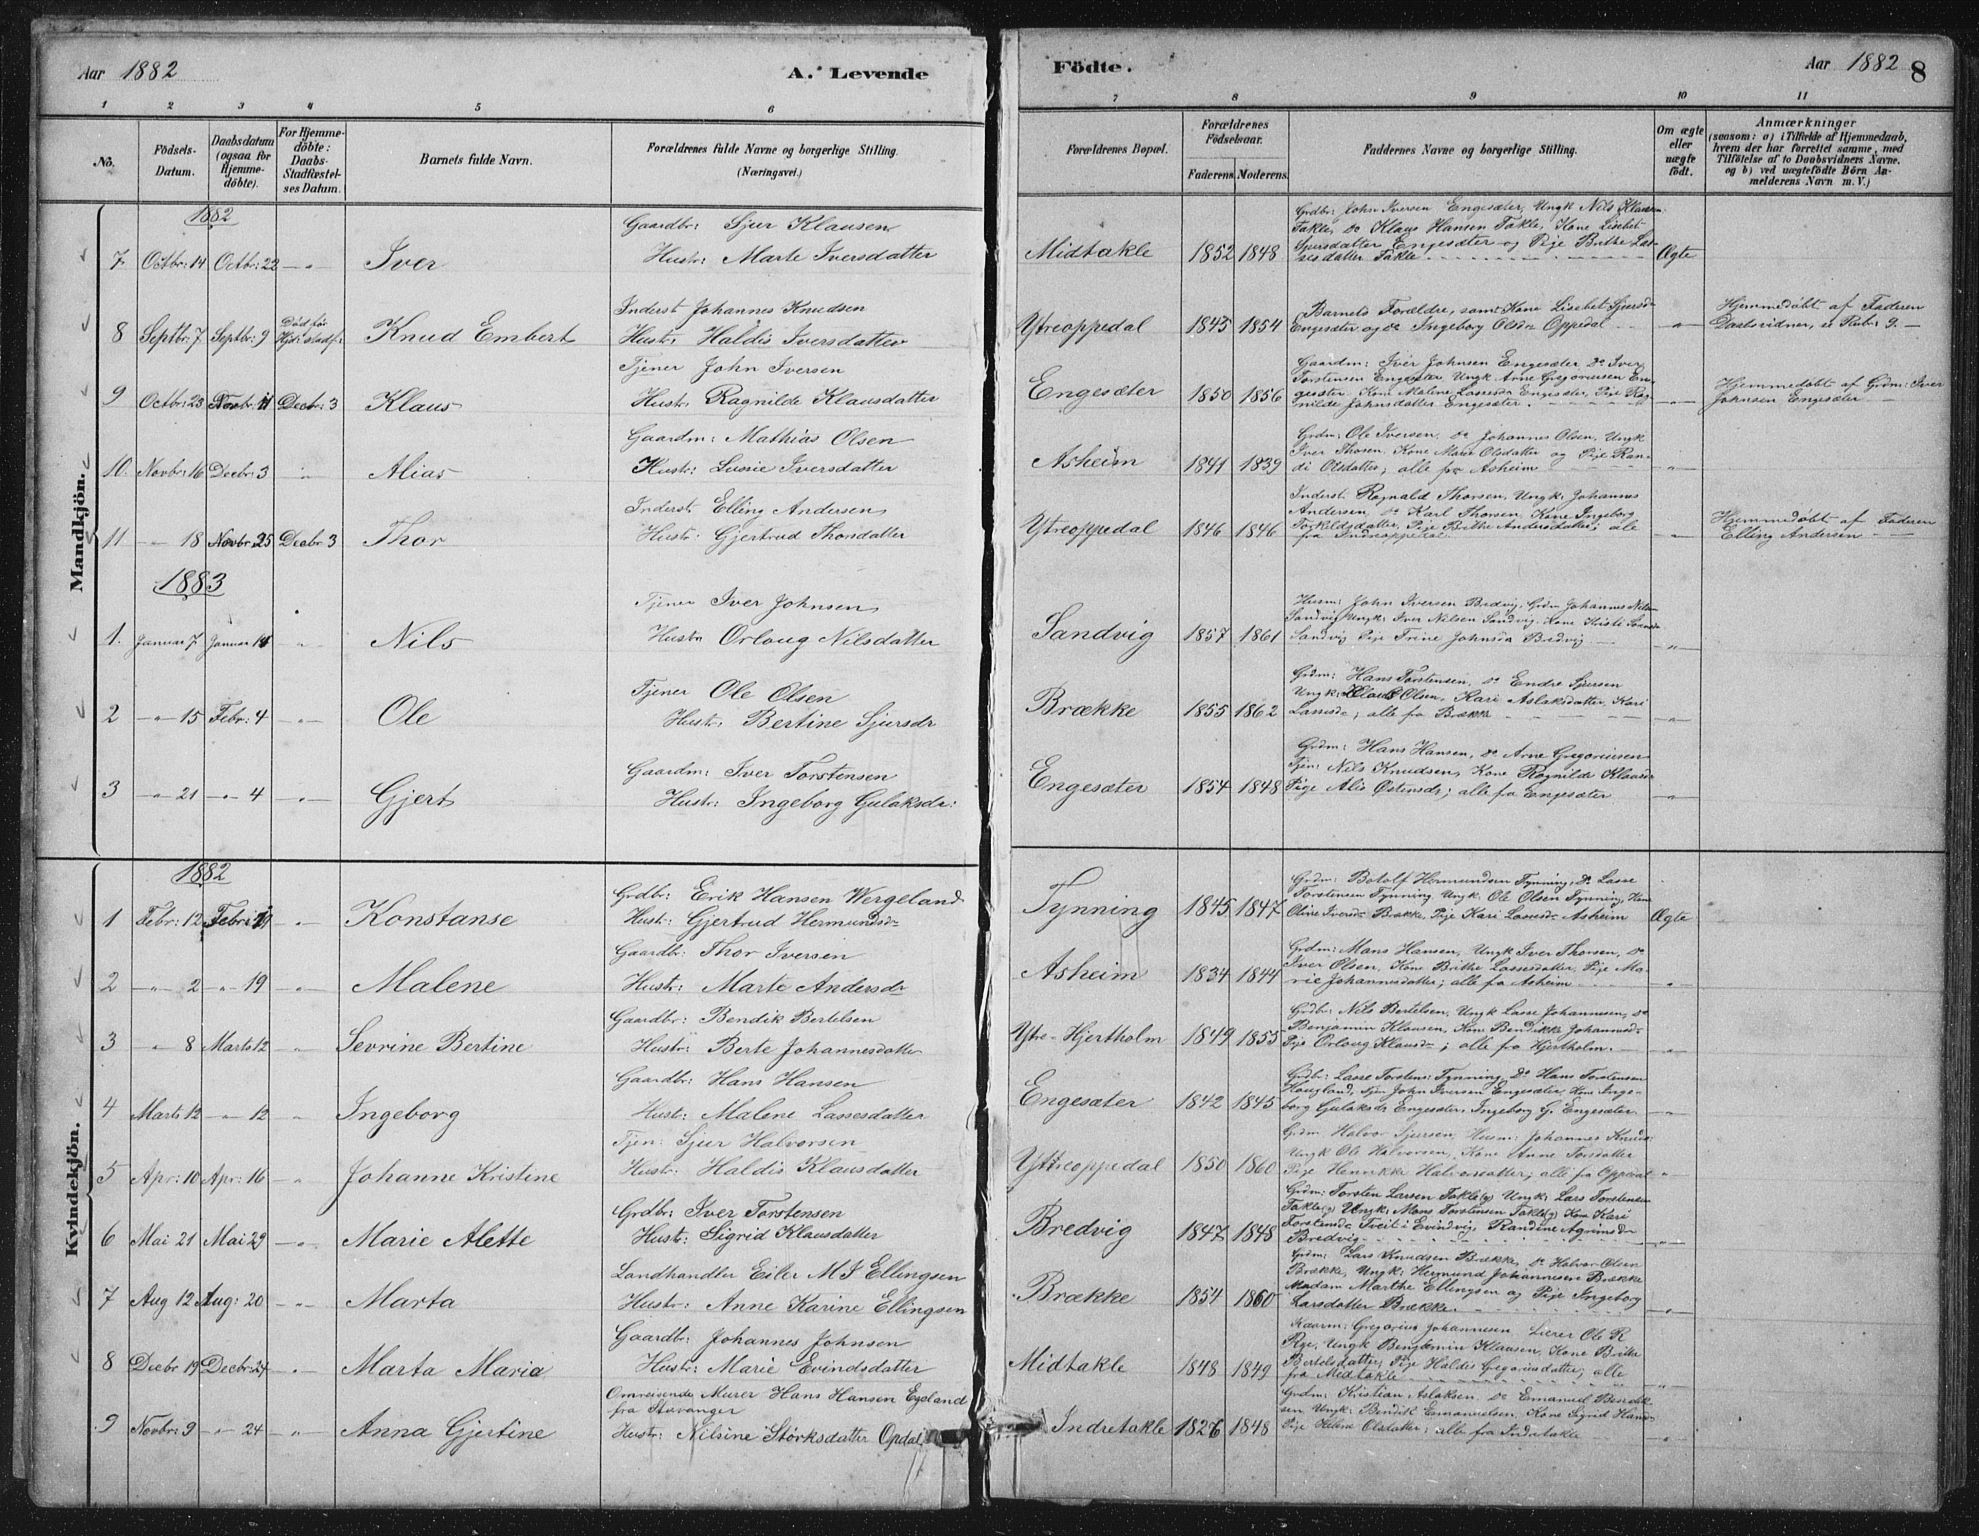 Aar 1882
A. Levende
Födte.
Aar 1882
8
1 2 3 4 5 6 7 8 9 10 11
No.
Födsels-Datum.
Daabsdatum (ogsaa for Hjemme-döbte).
For Hjemme-döbte: Daabs-Stadfæstel-ses Datum.
Barnets fulde Navn.
Forældrenes fulde Navne og borgerlige Stilling.
(Næringsvei.)
Forældrenes Bopæl.
Forældrenes Födselsaar.
Faderens. Moderens.
Faddernes Navne og borgerlige Stilling.
Om ægte eller uægte födt.
Anmærkninger
(saasom: a) i Tilfælde af Hjemmedaab,
hvem der har forrettet samme, med
Tilföielse af to Daabsvidners Navne.
og b) ved uægtefödte Börn An-
melderens Navn m. V.)
Mandkjön.
1882
Gaardbr: Sjur Klausen
7 Octbr: 14 Octbr: 22 " Iver
Hustr: Marte Iversdatter
Midtakle 1852 1848
Grdbr: John Iversen Engesæter, Ungk Nils Klausen
Takle, Do Klaus Hansen Takle, Kone Lisebet
Sjursdatter Engesæter og Pige Brithe Las-
sesdatter Takle
Ægte
Inderst Johannes Knudsen
8 Septbr: 7 Septbr: 9 Död før Hjd: stadf: Knud Embert
Hustr: Haldis Iversdatter
Ytreoppedal 1845 1854
Barnets Forældre, samt Kone Lisebet Sjursdr
Engesæter og do Ingeborg Olsdr Oppedal
"
Hjemmedöbt af Faderen
Daabsvidner, se Rubr: 9.
Tjener John Iversen
9 Octbr: 23 Novbr: 11 Decbr: 3 Klaus
Hustr: Ragnilde Klausdatter
Engesæter 1850 1856
Gaardm: Iver Johnsen Engesæter Do Iver
Torstensen Engesæter, Ungk Arne Gregoriusen En-
gesæter, Kone Malene Lassesdr Engesæter, Pige Rag-
nilde Johnsdatter Engesæter.
"
Hjemmedöbt af Grdm: Iver
Johnsen Engesæter
Gaardm: Mathias Olsen
10. Novbr: 16 Decbr: 3 " Alias
Hustr: Lussie Iversdatter
Asheim 1841 1839
Grdm: Ole Iversen, Do Johannes Olsen, Ungk
Iver Thorsen, Kone Marte Olsdatter og Pige Ran-
di Olsdatter; alle fra Asheim
"
Inderst Elling Andersen
11 " 18 Novbr: 25 Decbr 3 Thor
Hustr: Gjertrud Thorsdatter
Ytreoppedal 1846 1846
Inderst Ragnald Thorsen, Ungk: Johannes
Andersen, do Karl Thorsen, Kone Ingeborg
Torkildsdatter, Pige Brithe Andersdatter; alle
fra Indreoppedal
"
Hjemmedöbt af Faderen
Elling Andersen
1883
Tjener Iver Johnsen
1. Januar 7 Januar 14 " Nils
Hustr: Orloug Nilsdatter
Sandvig 1857 1861
Husm: John Iversen Bredvig, Grdm Johannes Nilsen
Sandvig, Ungk: Iver Nilsen Sandvig, Kone Kristi
Sandvig Pige Trine Johnsdr Bredvig
"
Tjener Ole Olsen
2 " 15 Febr: 4 " Ole
Hustr: Bertine Sjursdr
Brække 1855 1862
Grdm: Hans Torstensen, Do Endre Sjursen
Ungk: Olsen, Kari Aslaksdatter, Kari
Lassesdr; alle fra Brække
"
Gaardm: Iver Torstensen
3 " 21 " 4 " Gjert
Hustr: Ingeborg Gulaksdr:
Engesæter 1854 1848
Grdm: Hans Hansen, do Arne Gregoriusen
Tjen: Nils Knudsen, Kone Ragnilde Klausdr
Pige Alis Østensdr; alle fra Engesæter
"
Kvindekjön.
1882
Grdbr: Erik Hansen Wergeland
1 Febr: 12 Febr: 19 " Konstanse
Hustr: Gjertrud Hermundsdr
Tynning 1845 1847
Grdm: Botolf Hermundsen Tynning, Do Lasse
Torstensen Tynning Ungk Ole Olsen Tynning, Kone
Oline Iversdr Brække, Pige Kari Lassesdr Asheim
Ægte
Gaardbr: Thor Iversen
2 " 2 " 19 " Malene
Hustr: Marte Andersdr
Asheim 1834 1844
Grdm: Mons Hansen, Ungk Iver Thorsen, Do
Iver Olsen, Kone Brithe Lassesdatter, Pige Ma-
rie Johannesdatter; alle fra Asheim
"
Gaardbr: Bendik Bertelsen
3 " 8 Marts 12 " Sevrine Bertine
Hustr: Berte Johannesdatter
Ytre-Hjertholm 1849 1855
Grdbr: Nils Bertelsen, Ungk Lasse Johannesen, do
Benjamin Klausen, Kone Bendikke Johannesdr
Pige Orloug Klausdr; alle fra Hjertholm.
"
Gaardbr: Hans Hansen
4 Marts 12 " 12 " Ingeborg
Hustr: Malene Lassesdatter
Engesæter 1842 1845
Grdbr: Lasse Torstens: Tynning, Do Hans Torstensen
Hougland, Tjen John Iversen Engesæter, Kone Inge-
borg Gulaksdr Engesæter, Ingeborg G. Engesæter
"
Tjen: Sjur Halvorsen
5 Apr: 10 Apr: 16 " Johanne Kristine
Hustr: Haldis Klausdatter
Ytreoppedal 1850 1860
Grdm Halvor Sjursen, Husm: Johannes Knuds:
Ungk Ole Halvorsen, Kone Anne Torsdatter
Pige Henrikke Halvorsdatter; alle fra Oppedal
"
Grdbr: Iver Torstensen
6 Mai 21 Mai 29 " Marie Alette
Hustr: Sigrid Klausdatter
Bredvig 1847 1848
Grdm: Torsten Larsen Takle(y) Ungk: Lars Torstensen
Takle(y) Ungk: Mons Torstensen Takle(y) Kone Kari
Torstensdr Tveit i Evindvig, Randine
Bredvig
"
Landhandler Eiler M J Ellingsen
7 Aug 12 Aug: 20 " Marta
Hustr: Anne Karine Ellingsen
Brække 1854 1860
Grdm: Lars Knudsen Brække, Do Halvor Olsen
Brække, Ungk: Hermund Johannesen Brække
Madam Marthe Ellingsen og Pige Ingeborg
Larsdatter Brække.
"
Gaardbr: Johannes Johnsen
8 Decbr 19 Decbr: 24 " Marta Maria
Hustr: Marie Evindsdatter
Midtakle 1848 1849
Kaarm: Gregorius Johannesen Lærer Ole R
Rye, Ungk Benjamin Klausen, Kone Brithe
Bertelsdatter, Pige Haldis Gregoriusdatter; alle
fra Medtakle
"
Omreisende Murer Hans Hansen Egeland
fra Stavanger
9 Novbr: 9 " 24 " Anna Gjertine
Hustr: Nilsine Størksdatter Opdal
Indretakle 1826 1848
Grdm: Kristian Aslaksen Do Emanuel Bendik-
sen, Ungk: Bendik Emanuelsen, Kone Sigrid Hansdr
Pige Helene Olsdatter; alle fra Indretakle
"